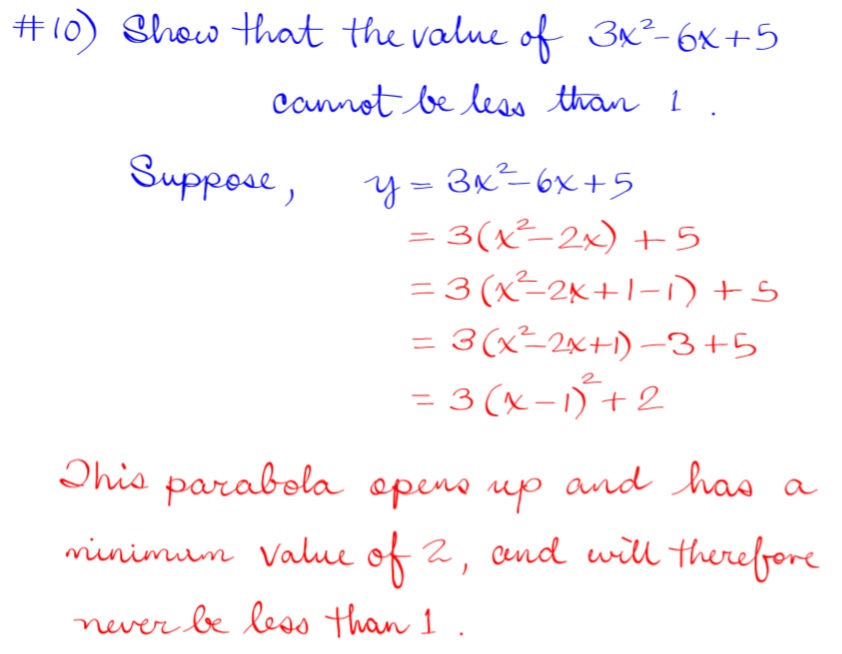 #10) Show that the value of 3x²-6x+5
cannot be less than 1.
Suppose, y = 3x²-6x+5
= 3(x²-2x) + 5
= 3(x²-2x+1-1) + 5
= 3(x²-2x+1) -3+5
= 3(x-1)² + 2
This parabola opens up and has a
minimum value of 2, and will therefore
never be less than 1.